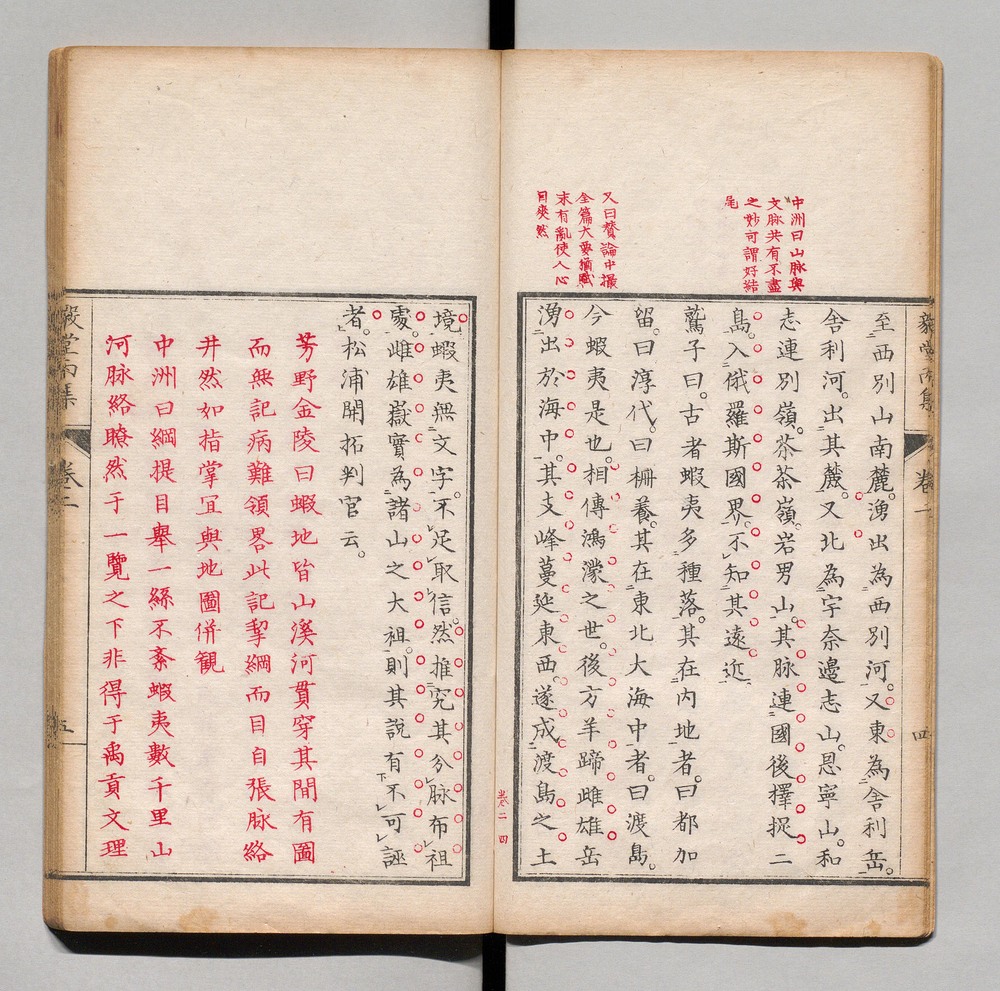 中洲曰山脉與
文脉共有不盡
之妙可謂好結
尾
又曰贊論中撮
全篇大要摛賦
末有亂使人心
目爽然
至西別山南麓。湧出為西別河。又東為舍利岳。
舍利河。出其麓。又北為宇奈邊志山。恩寧山。和
志連別嶺。茶茶嶺。岩男山。其脉連國後擇捉二
島。入俄羅斯國界。不知其遠近。
鷲子曰。古者蝦夷多種落。其在内地者。曰都加
留。曰淳代。曰柵養。其在東北大海中者。曰渡島。
今蝦夷是也。相傳鴻濛之世。後方羊蹄雌雄岳
湧出於海中。其支峰蔓延東西。遂成渡島之土
毅堂丙集
卷二
四
卷二 四
境。蝦夷無文字。不足取信。然推究其分脉布祖
處。雌雄嶽實為諸山之大祖。則其說有不可誣
者。松浦開拓判官云。
芳野金陵曰蝦地皆山溪河貫穿其間有圖
而無記病難領畧此記挈綱而目自張脉絡
井然如指掌宜與地圖併観
中洲曰綱提目舉一絲不紊蝦夷數千里山
河脉絡瞭然于一覽之下非得于禹貢文理
毅堂丙集
卷二
五